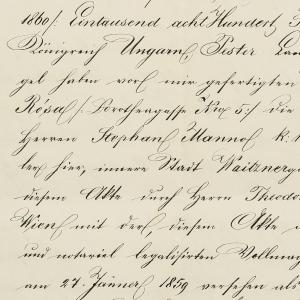 1860/: Eintausend acht Hundert
Königreich Ungarn, Pester
gel haben vor mir gefertigten
Rósa /: Dorotheagasse Nro 5:/ die
Herren Stephan Mannos k:
ler hier, innere Stadt Waitzner
diesem Akte durch Herrn Theodor
Wien mit der, diesem Akte
und notariel legalisirten Vollmacht
am 27. Jänner 1859 versehen als